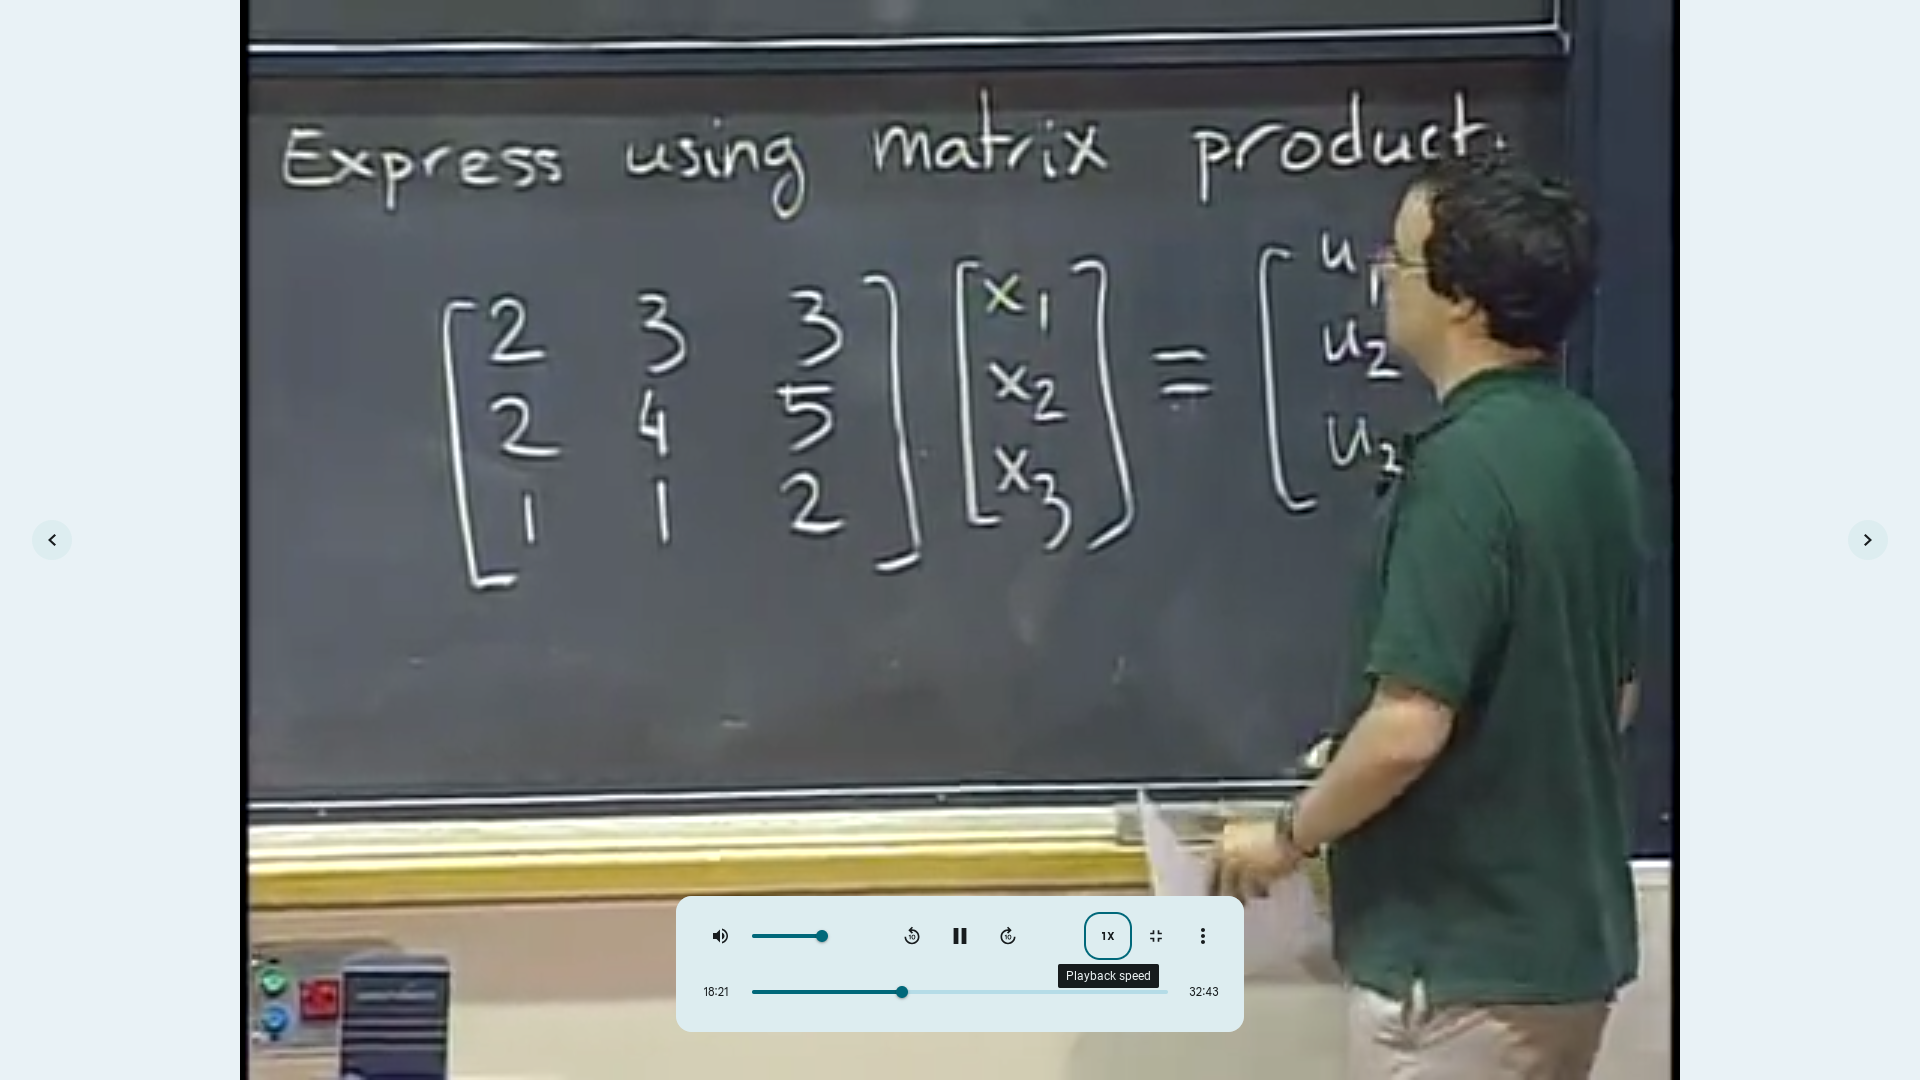 Express using matrix product.
2 3 3
2 4 5
1 1 2
x1
x2
x3
=
u1
u2
u3
1X
Playback speed
18:21
32:43